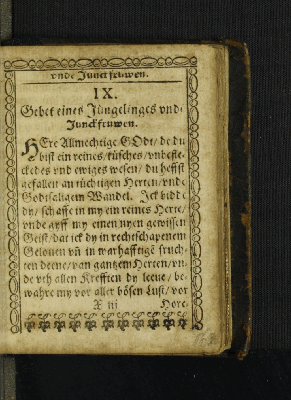 vnde Junckfruwen.
IX.
Gebet eines Jüngelinges vnd
Junckfruwen.
HEre Allmechtige GOdt/ de du
bist ein reines/ küsches/ vnbefle-
ckedes vnd ewiges wesen/ du heffst
gefallen an tüchtigen Herten/ vnde
Godtsaligem Wandel. Ick bidde
dy/ schaffe in my ein reines Herte/
vnde gyff my einen nyen gewissen
Geist/ dat ick dy in rechtschapenem
Gelouen vñ in warhafftigẽ fruch-
ten deene/ van gantzem Herten/ vn-
de vth allen Krefften dy leeue/ be-
wahre my vor aller bösen Lust/ vor
X iij
Hore-